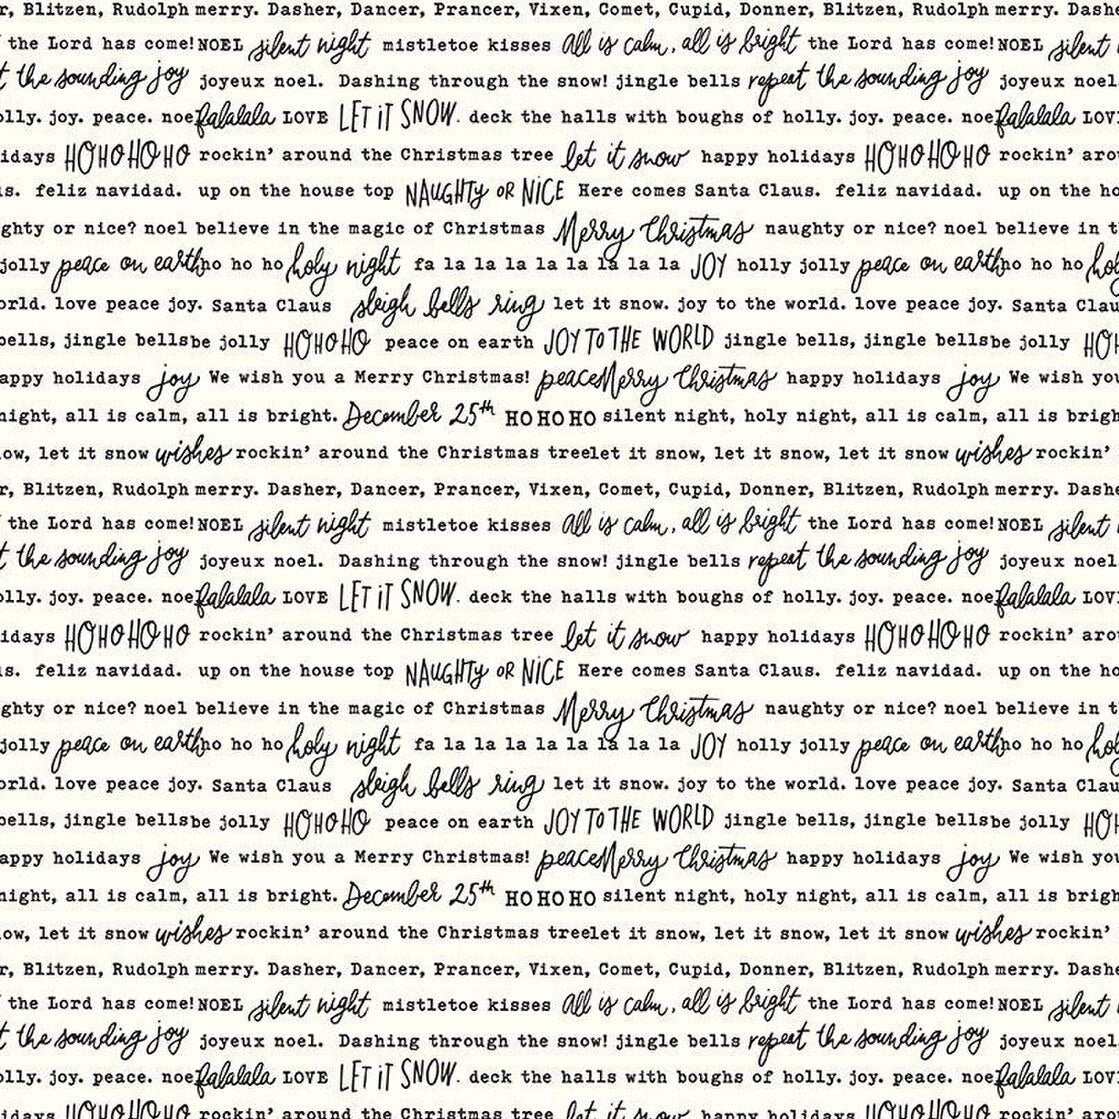 r, Blitzen, Rudolph merry. Dasher, Dancer, Prancer, Vixen, Comet, Cupid, Donner, Blitzen, Rudolph merry. Dashe
the Lord has come! NOEL silent night mistletoe kisses All is calm, all is bright the Lord has come! NOEL silent
t the sounding joy joyeux noel. Dashing through the snow! jingle bells repeat the sounding joy joyeux noel
olly. joy. peace. noe falalala LOVE LET IT SNOW. deck the halls with boughs of holly. joy. peace. noe falalala LOV
idays HOHOHOHO rockin' around the Christmas tree let it snow happy holidays HOHOHOHO rockin' aro
s. feliz navidad. up on the house top NAUGHTY OR NICE Here comes Santa Claus. feliz navidad. up on the ho
ghty or nice? noel believe in the magic of Christmas Merry Christmas naughty or nice? noel believe in t
jolly peace on earth ho ho ho holy night fa la la la la la la la la JOY holly jolly peace on earth ho ho ho hol
orld. love peace joy. Santa Claus sleigh bells ring let it snow. joy to the world. love peace joy. Santa Clau
bells, jingle bells be jolly HOHOHO peace on earth JOY TO THE WORLD jingle bells, jingle bells be jolly HOH
appy holidays joy We wish you a Merry Christmas! peace Merry Christmas happy holidays joy We wish you
night, all is calm, all is bright. December 25th HOHOHO silent night, holy night, all is calm, all is brigh
ow, let it snow wishes rockin' around the Christmas tree let it snow, let it snow, let it snow wishes rockin'
r, Blitzen, Rudolph merry. Dasher, Dancer, Prancer, Vixen, Comet, Cupid, Donner, Blitzen, Rudolph merry. Dashe
the Lord has come! NOEL silent night mistletoe kisses All is calm, all is bright the Lord has come! NOEL silent
t the sounding joy joyeux noel. Dashing through the snow! jingle bells repeat the sounding joy joyeux noel
olly. joy. peace. noe falalala LOVE LET IT SNOW. deck the halls with boughs of holly. joy. peace. noe falalala LOV
idays HOHOHOHO rockin' around the Christmas tree let it snow happy holidays HOHOHOHO rockin' aro
s. feliz navidad. up on the house top NAUGHTY OR NICE Here comes Santa Claus. feliz navidad. up on the ho
ghty or nice? noel believe in the magic of Christmas Merry Christmas naughty or nice? noel believe in t
jolly peace on earth ho ho ho holy night fa la la la la la la la la JOY holly jolly peace on earth ho ho ho hol
orld. love peace joy. Santa Claus sleigh bells ring let it snow. joy to the world. love peace joy. Santa Clau
bells, jingle bells be jolly HOHOHO peace on earth JOY TO THE WORLD jingle bells, jingle bells be jolly HOH
appy holidays joy We wish you a Merry Christmas! peace Merry Christmas happy holidays joy We wish you
night, all is calm, all is bright. December 25th HOHOHO silent night, holy night, all is calm, all is brigh
ow, let it snow wishes rockin' around the Christmas tree let it snow, let it snow, let it snow wishes rockin'
r, Blitzen, Rudolph merry. Dasher, Dancer, Prancer, Vixen, Comet, Cupid, Donner, Blitzen, Rudolph merry. Dashe
the Lord has come! NOEL silent night mistletoe kisses All is calm, all is bright the Lord has come! NOEL silent
t the sounding joy joyeux noel. Dashing through the snow! jingle bells repeat the sounding joy joyeux noel
olly. joy. peace. noe falalala LOVE LET IT SNOW. deck the halls with boughs of holly. joy. peace. noe falalala LOV
idays HOHOHOHO rockin' around the Christmas tree let it snow happy holidays HOHOHOHO rockin' aro